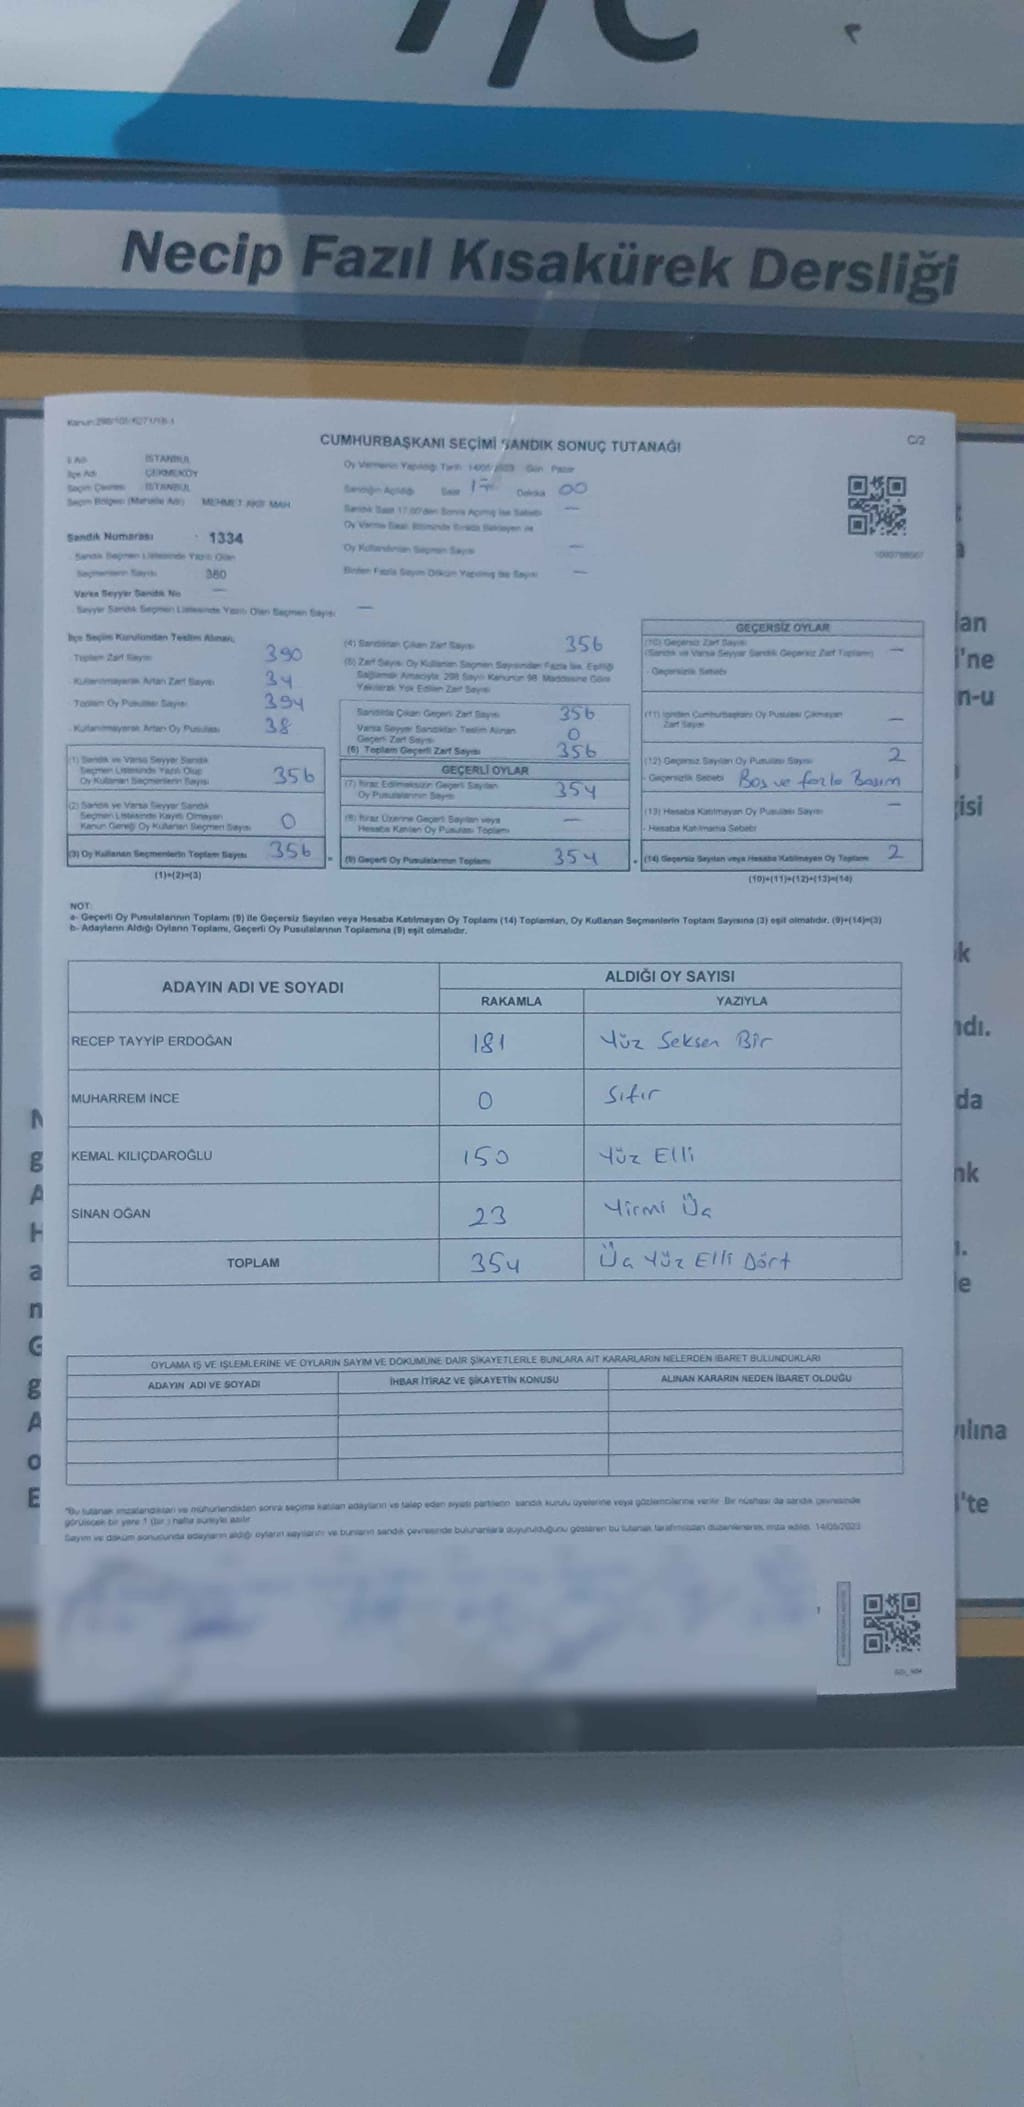 Necip Fazıl Kısakürek Dersliği
CUMHURBAŞKANI SEÇİMİ SANDIK SONUÇ TUTANAĞI
C/2
İl Adı İSTANBUL
İlçe Adı ÇEKMEKÖY
Seçim Çevresi İSTANBUL
Seçim Bölgesi (Mahalle Adı) MEHMET AKİF MAH
Oy Vermenin Yapıldığı Tarih 14/05/2023 Gün Pazar
Sandığın Açıldığı Saat 17 Dakika 00
Sandık Saat 17.00'den Sonra Açılmış İse Sebebi —
Oy Verme Saati Bitiminde Sırada Bekleyen ve
Oy Kullandırılan Seçmen Sayısı —
Birden Fazla Sayım Döküm Yapılmış İse Sayısı —
Sandık Numarası : 1334
Sandık Seçmen Listesinde Yazılı Olan
Seçmenlerin Sayısı 380
Varsa Seyyar Sandık No —
Seyyar Sandık Seçmen Listesinde Yazılı Olan Seçmen Sayısı —
İlçe Seçim Kurulundan Teslim Alınan;
- Toplam Zarf Sayısı 390
- Kullanılmayarak Artan Zarf Sayısı 34
- Toplam Oy Pusulası Sayısı 394
- Kullanılmayarak Artan Oy Pusulası 38
(1) Sandık ve Varsa Seyyar Sandık
Seçmen Listesinde Yazılı Olup
Oy Kullanan Seçmenlerin Sayısı 356
(2) Sandık ve Varsa Seyyar Sandık
Seçmen Listesinde Kayıtlı Olmayan
Kanun Gereği Oy Kullanan Seçmen Sayısı 0
(3) Oy Kullanan Seçmenlerin Toplam Sayısı 356
(1)+(2)=(3)
(4) Sandıktan Çıkan Zarf Sayısı 356
(5) Zarf Sayısı Oy Kullanan Seçmen Sayısından Fazla İse, Eşitliği
Sağlamak Amacıyla, 298 Sayılı Kanunun 98. Maddesine Göre
Yakılarak Yok Edilen Zarf Sayısı
Sandıkta Çıkan Geçerli Zarf Sayısı 356
Varsa Seyyar Sandıktan Teslim Alınan
Geçerli Zarf Sayısı 0
(6) Toplam Geçerli Zarf Sayısı 356
GEÇERLİ OYLAR
(7) İtiraz Edilmeksizin Geçerli Sayılan
Oy Pusulalarının Sayısı 354
(8) İtiraz Üzerine Geçerli Sayılan veya
Hesaba Katılan Oy Pusulası Toplamı —
(9) Geçerli Oy Pusulalarının Toplamı 354
GEÇERSİZ OYLAR
(10) Geçersiz Zarf Sayısı
(Sandık ve Varsa Seyyar Sandık Geçersiz Zarf Toplamı) —
- Geçersizlik Sebebi
(11) İçinden Cumhurbaşkanı Oy Pusulası Çıkmayan
Zarf Sayısı —
(12) Geçersiz Sayılan Oy Pusulası Sayısı 2
- Geçersizlik Sebebi Boş ve fazla Basım
(13) Hesaba Katılmayan Oy Pusulası Sayısı —
- Hesaba Katılmama Sebebi
(14) Geçersiz Sayılan veya Hesaba Katılmayan Oy Toplamı 2
(10)+(11)+(12)+(13)=(14)
NOT:
a- Geçerli Oy Pusulalarının Toplamı (9) ile Geçersiz Sayılan veya Hesaba Katılmayan Oy Toplamı (14) Toplamları, Oy Kullanan Seçmenlerin Toplam Sayısına (3) eşit olmalıdır. (9)+(14)=(3)
b- Adayların Aldığı Oyların Toplamı, Geçerli Oy Pusulalarının Toplamına (9) eşit olmalıdır.
ADAYIN ADI VE SOYADI
ALDIĞI OY SAYISI
RAKAMLA YAZIYLA
RECEP TAYYİP ERDOĞAN 181 Yüz Seksen Bir
MUHARREM İNCE 0 Sıfır
KEMAL KILIÇDAROĞLU 150 Yüz Elli
SİNAN OĞAN 23 Yirmi Üç
TOPLAM 354 Üç Yüz Elli Dört
OYLAMA İŞ VE İŞLEMLERİNE VE OYLARIN SAYIM VE DÖKÜMÜNE DAİR ŞİKAYETLERLE BUNLARA AİT KARARLARIN NELERDEN İBARET BULUNDUKLARI
ADAYIN ADI VE SOYADI İHBAR İTİRAZ VE ŞİKAYETİN KONUSU ALINAN KARARIN NEDEN İBARET OLDUĞU
"Bu tutanak imzalandıktan ve mühürlendikten sonra seçime katılan adayların ve talep eden siyasi partilerin sandık kurulu üyelerine veya gözlemcilerine verilir. Bir nüshası da sandık çevresinde
görülecek bir yere 1 (bir) hafta süreyle asılır.
Sayım ve döküm sonucunda adayların aldığı oyların sayılarını ve bunların sandık çevresinde bulunanlara duyurulduğunu gösteren bu tutanak tarafımızdan düzenlenerek imza edildi. 14/05/2023